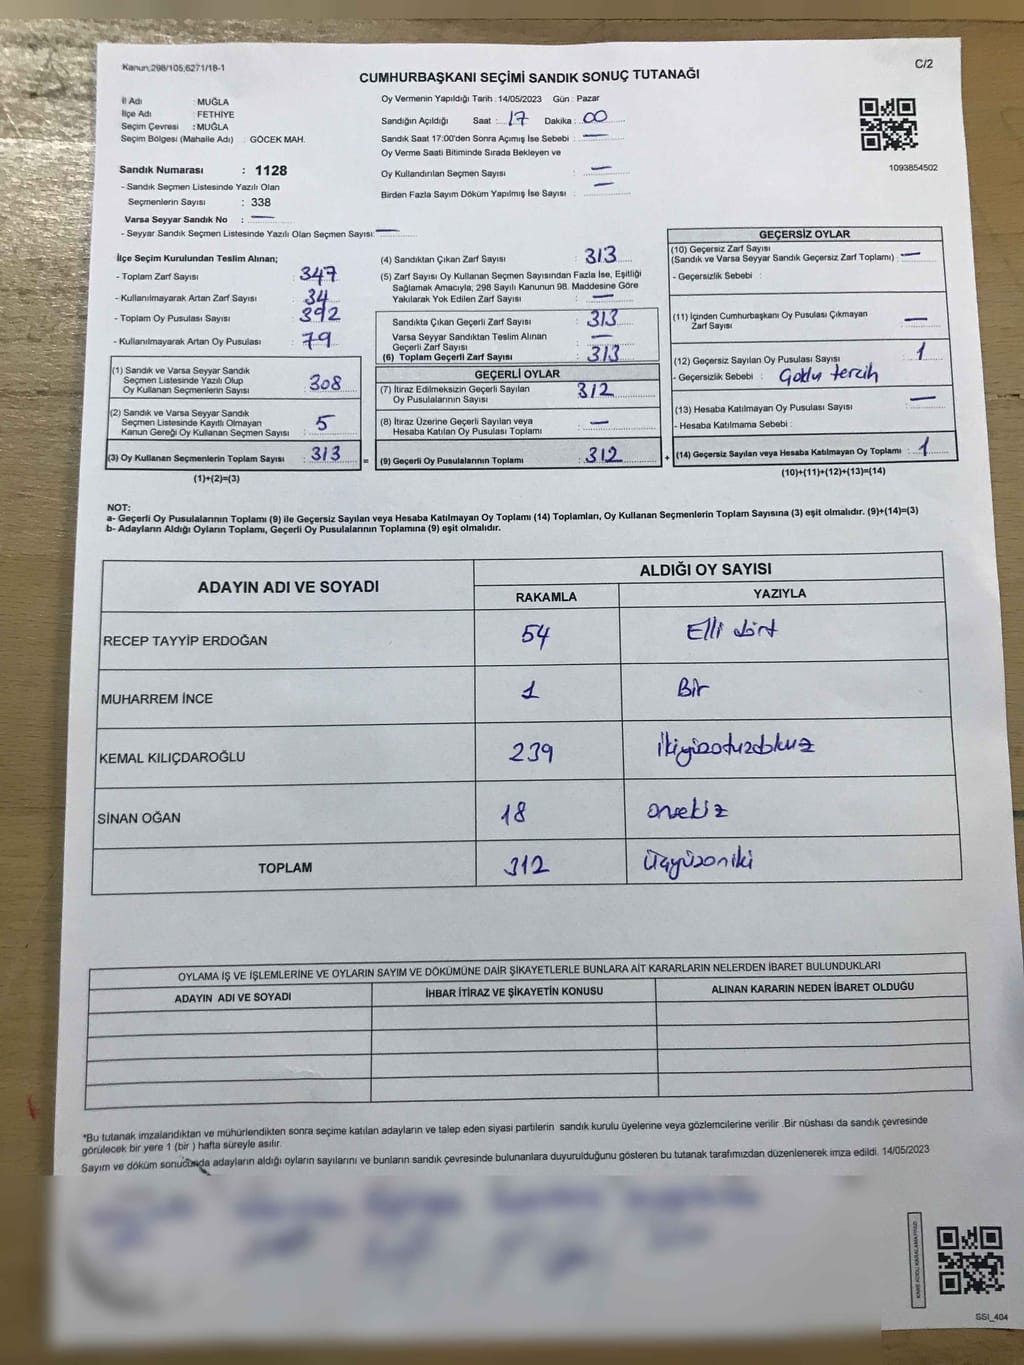 Kanun,298/105,6271/18-1
C/2
CUMHURBAŞKANI SEÇİMİ SANDIK SONUÇ TUTANAĞI
İl Adı : MUĞLA
İlçe Adı : FETHİYE
Seçim Çevresi : MUĞLA
Seçim Bölgesi (Mahalle Adı) : GÖCEK MAH.
Oy Vermenin Yapıldığı Tarih : 14/05/2023 Gün : Pazar
Sandığın Açıldığı Saat : 17 Dakika : 00
Sandık Saat 17:00'den Sonra Açımış İse Sebebi : —
Oy Verme Saati Bitiminde Sırada Bekleyen ve
Oy Kullandırılan Seçmen Sayısı : —
Birden Fazla Sayım Döküm Yapılmış İse Sayısı : —
1093854502
Sandık Numarası : 1128
- Sandık Seçmen Listesinde Yazılı Olan
Seçmenlerin Sayısı : 338
Varsa Seyyar Sandık No : —
- Seyyar Sandık Seçmen Listesinde Yazılı Olan Seçmen Sayısı: —
İlçe Seçim Kurulundan Teslim Alınan;
- Toplam Zarf Sayısı : 347
- Kullanılmayarak Artan Zarf Sayısı : 34
- Toplam Oy Pusulası Sayısı : 392
- Kullanılmayarak Artan Oy Pusulası : 79
(1) Sandık ve Varsa Seyyar Sandık
Seçmen Listesinde Yazılı Olup
Oy Kullanan Seçmenlerin Sayısı : 308
(2) Sandık ve Varsa Seyyar Sandık
Seçmen Listesinde Kayıtlı Olmayan
Kanun Gereği Oy Kullanan Seçmen Sayısı : 5
(3) Oy Kullanan Seçmenlerin Toplam Sayısı : 313 =
(1)+(2)=(3)
(4) Sandıktan Çıkan Zarf Sayısı : 313
(5) Zarf Sayısı Oy Kullanan Seçmen Sayısından Fazla İse, Eşitliği
Sağlamak Amacıyla; 298 Sayılı Kanunun 98. Maddesine Göre
Yakılarak Yok Edilen Zarf Sayısı : —
Sandıkta Çıkan Geçerli Zarf Sayısı : 313
Varsa Seyyar Sandıktan Teslim Alınan
Geçerli Zarf Sayısı : —
(6) Toplam Geçerli Zarf Sayısı : 313
GEÇERLİ OYLAR
(7) İtiraz Edilmeksizin Geçerli Sayılan
Oy Pusulalarının Sayısı : 312
(8) İtiraz Üzerine Geçerli Sayılan veya
Hesaba Katılan Oy Pusulası Toplamı : —
(9) Geçerli Oy Pusulalarının Toplamı : 312 +
GEÇERSİZ OYLAR
(10) Geçersiz Zarf Sayısı
(Sandık ve Varsa Seyyar Sandık Geçersiz Zarf Toplamı) : —
- Geçersizlik Sebebi :
(11) İçinden Cumhurbaşkanı Oy Pusulası Çıkmayan
Zarf Sayısı : —
(12) Geçersiz Sayılan Oy Pusulası Sayısı : 1
- Geçersizlik Sebebi : Çoklu tercih
(13) Hesaba Katılmayan Oy Pusulası Sayısı : —
- Hesaba Katılmama Sebebi :
(14) Geçersiz Sayılan veya Hesaba Katılmayan Oy Toplamı : 1
(10)+(11)+(12)+(13)=(14)
NOT:
a- Geçerli Oy Pusulalarının Toplamı (9) ile Geçersiz Sayılan veya Hesaba Katılmayan Oy Toplamı (14) Toplamları, Oy Kullanan Seçmenlerin Toplam Sayısına (3) eşit olmalıdır. (9)+(14)=(3)
b- Adayların Aldığı Oyların Toplamı, Geçerli Oy Pusulalarının Toplamına (9) eşit olmalıdır.
ADAYIN ADI VE SOYADI
ALDIĞI OY SAYISI
RAKAMLA YAZIYLA
RECEP TAYYİP ERDOĞAN 54 Elli dört
MUHARREM İNCE 1 Bir
KEMAL KILIÇDAROĞLU 239 İkiyüzotuzdokuz
SİNAN OĞAN 18 onsekiz
TOPLAM 312 Üçyüzoniki
OYLAMA İŞ VE İŞLEMLERİNE VE OYLARIN SAYIM VE DÖKÜMÜNE DAİR ŞİKAYETLERLE BUNLARA AİT KARARLARIN NELERDEN İBARET BULUNDUKLARI
ADAYIN ADI VE SOYADI İHBAR İTİRAZ VE ŞİKAYETİN KONUSU ALINAN KARARIN NEDEN İBARET OLDUĞU
*Bu tutanak imzalandıktan ve mühürlendikten sonra seçime katılan adayların ve talep eden siyasi partilerin sandık kurulu üyelerine veya gözlemcilerine verilir .Bir nüshası da sandık çevresinde
görülecek bir yere 1 (bir ) hafta süreyle asılır.
Sayım ve döküm sonucunda adayların aldığı oyların sayılarını ve bunların sandık çevresinde bulunanlara duyurulduğunu gösteren bu tutanak tarafımızdan düzenlenerek imza edildi. 14/05/2023
SSI_404